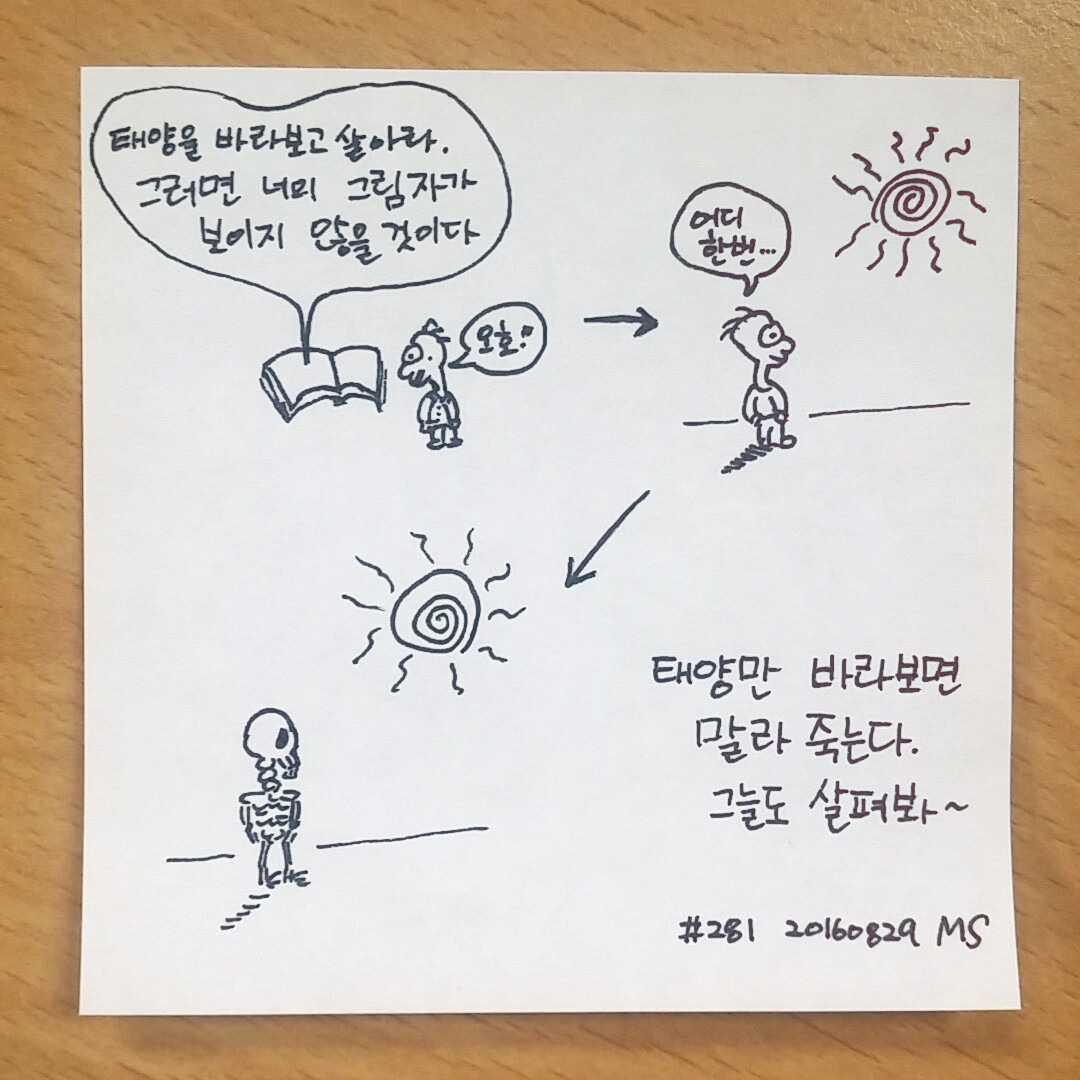 태양을 바라보고 살아라.
그러면 너의 그림자가
보이지 않을 것이다
오호!!
어디
한번...
태양만 바라보면
말라 죽는다.
그늘도 살펴봐~
#281 20160829 MS